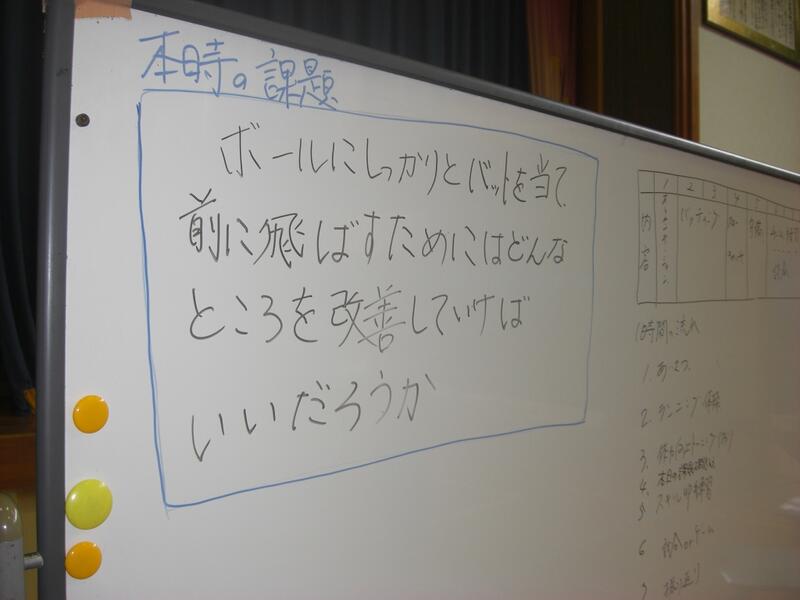 本時の課題
ボールにしっかりとバットを当て
前に飛ばすためにはどんな
ところを改善していけば
いいだろうか
1 2 3 4
内容
バッティング
1時間の流れ
1. あいさつ
2. ランニング・体操
3.
4. 本日の課題
5 スキル練習
6 試合orゲーム
7 振り返り